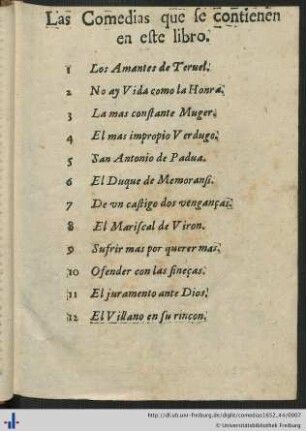 Las Comedias que se contienen
en este libro.
1 Los Amantes de Teruel.
2 No ay Vida como la Honra.
3 La mas constante Muger.
4 El mas impropio Verdugo.
5 San Antonio de Padua.
6 El Duque de Memoransi.
7 De vn castigo dos venganças.
8 El Mariscal de Viron.
9 Sufrir mas por querer mas.
10 Ofender con las fineças.
11 El juramento ante Dios.
12 El Villano en su rincon.
http://dl.ub.uni-freiburg.de/diglit/comedias1652_44/0007
© Universitätsbibliothek Freiburg